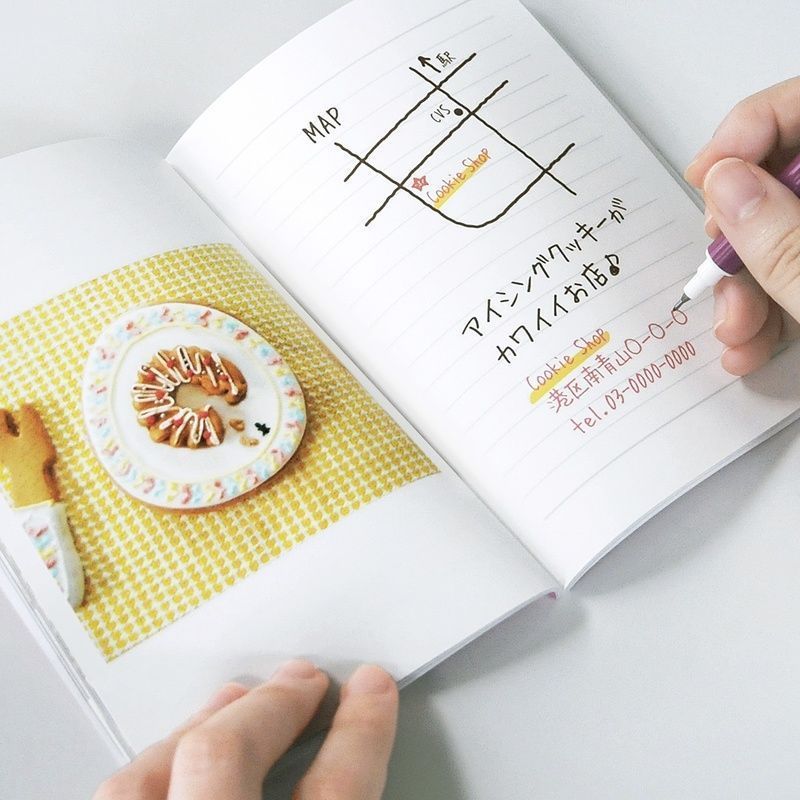 駅
MAP
CVS
Cookie Shop
アイシングクッキーが
カワイイお店♪
Cookie Shop
港区南青山0-0-0
tel.03-0000-0000